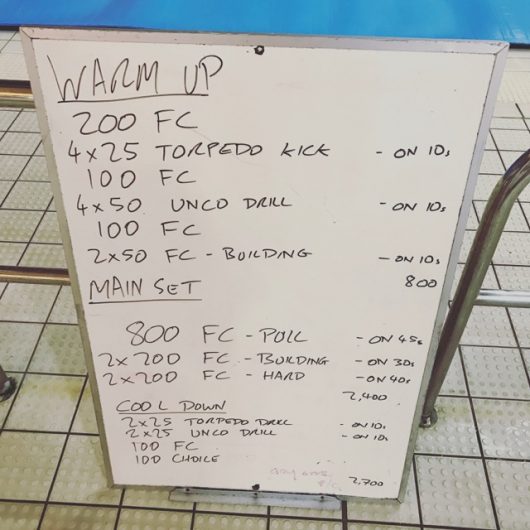 WARM UP
200 FC
4x25 TORPEDO KICK - ON 10s
100 FC
4x50 UNCO DRILL - ON 10s
100 FC
2x50 FC - BUILDING - ON 10s
800
MAIN SET
800 FC - PULL - ON 45s
2x200 FC - BUILDING - ON 30s
2x200 FC - HARD - ON 40s
2,400
COOL DOWN
2x25 TORPEDO DRILL - ON 10s
2x25 UNCO DRILL - ON 10s
100 FC
100 CHOICE
2,700